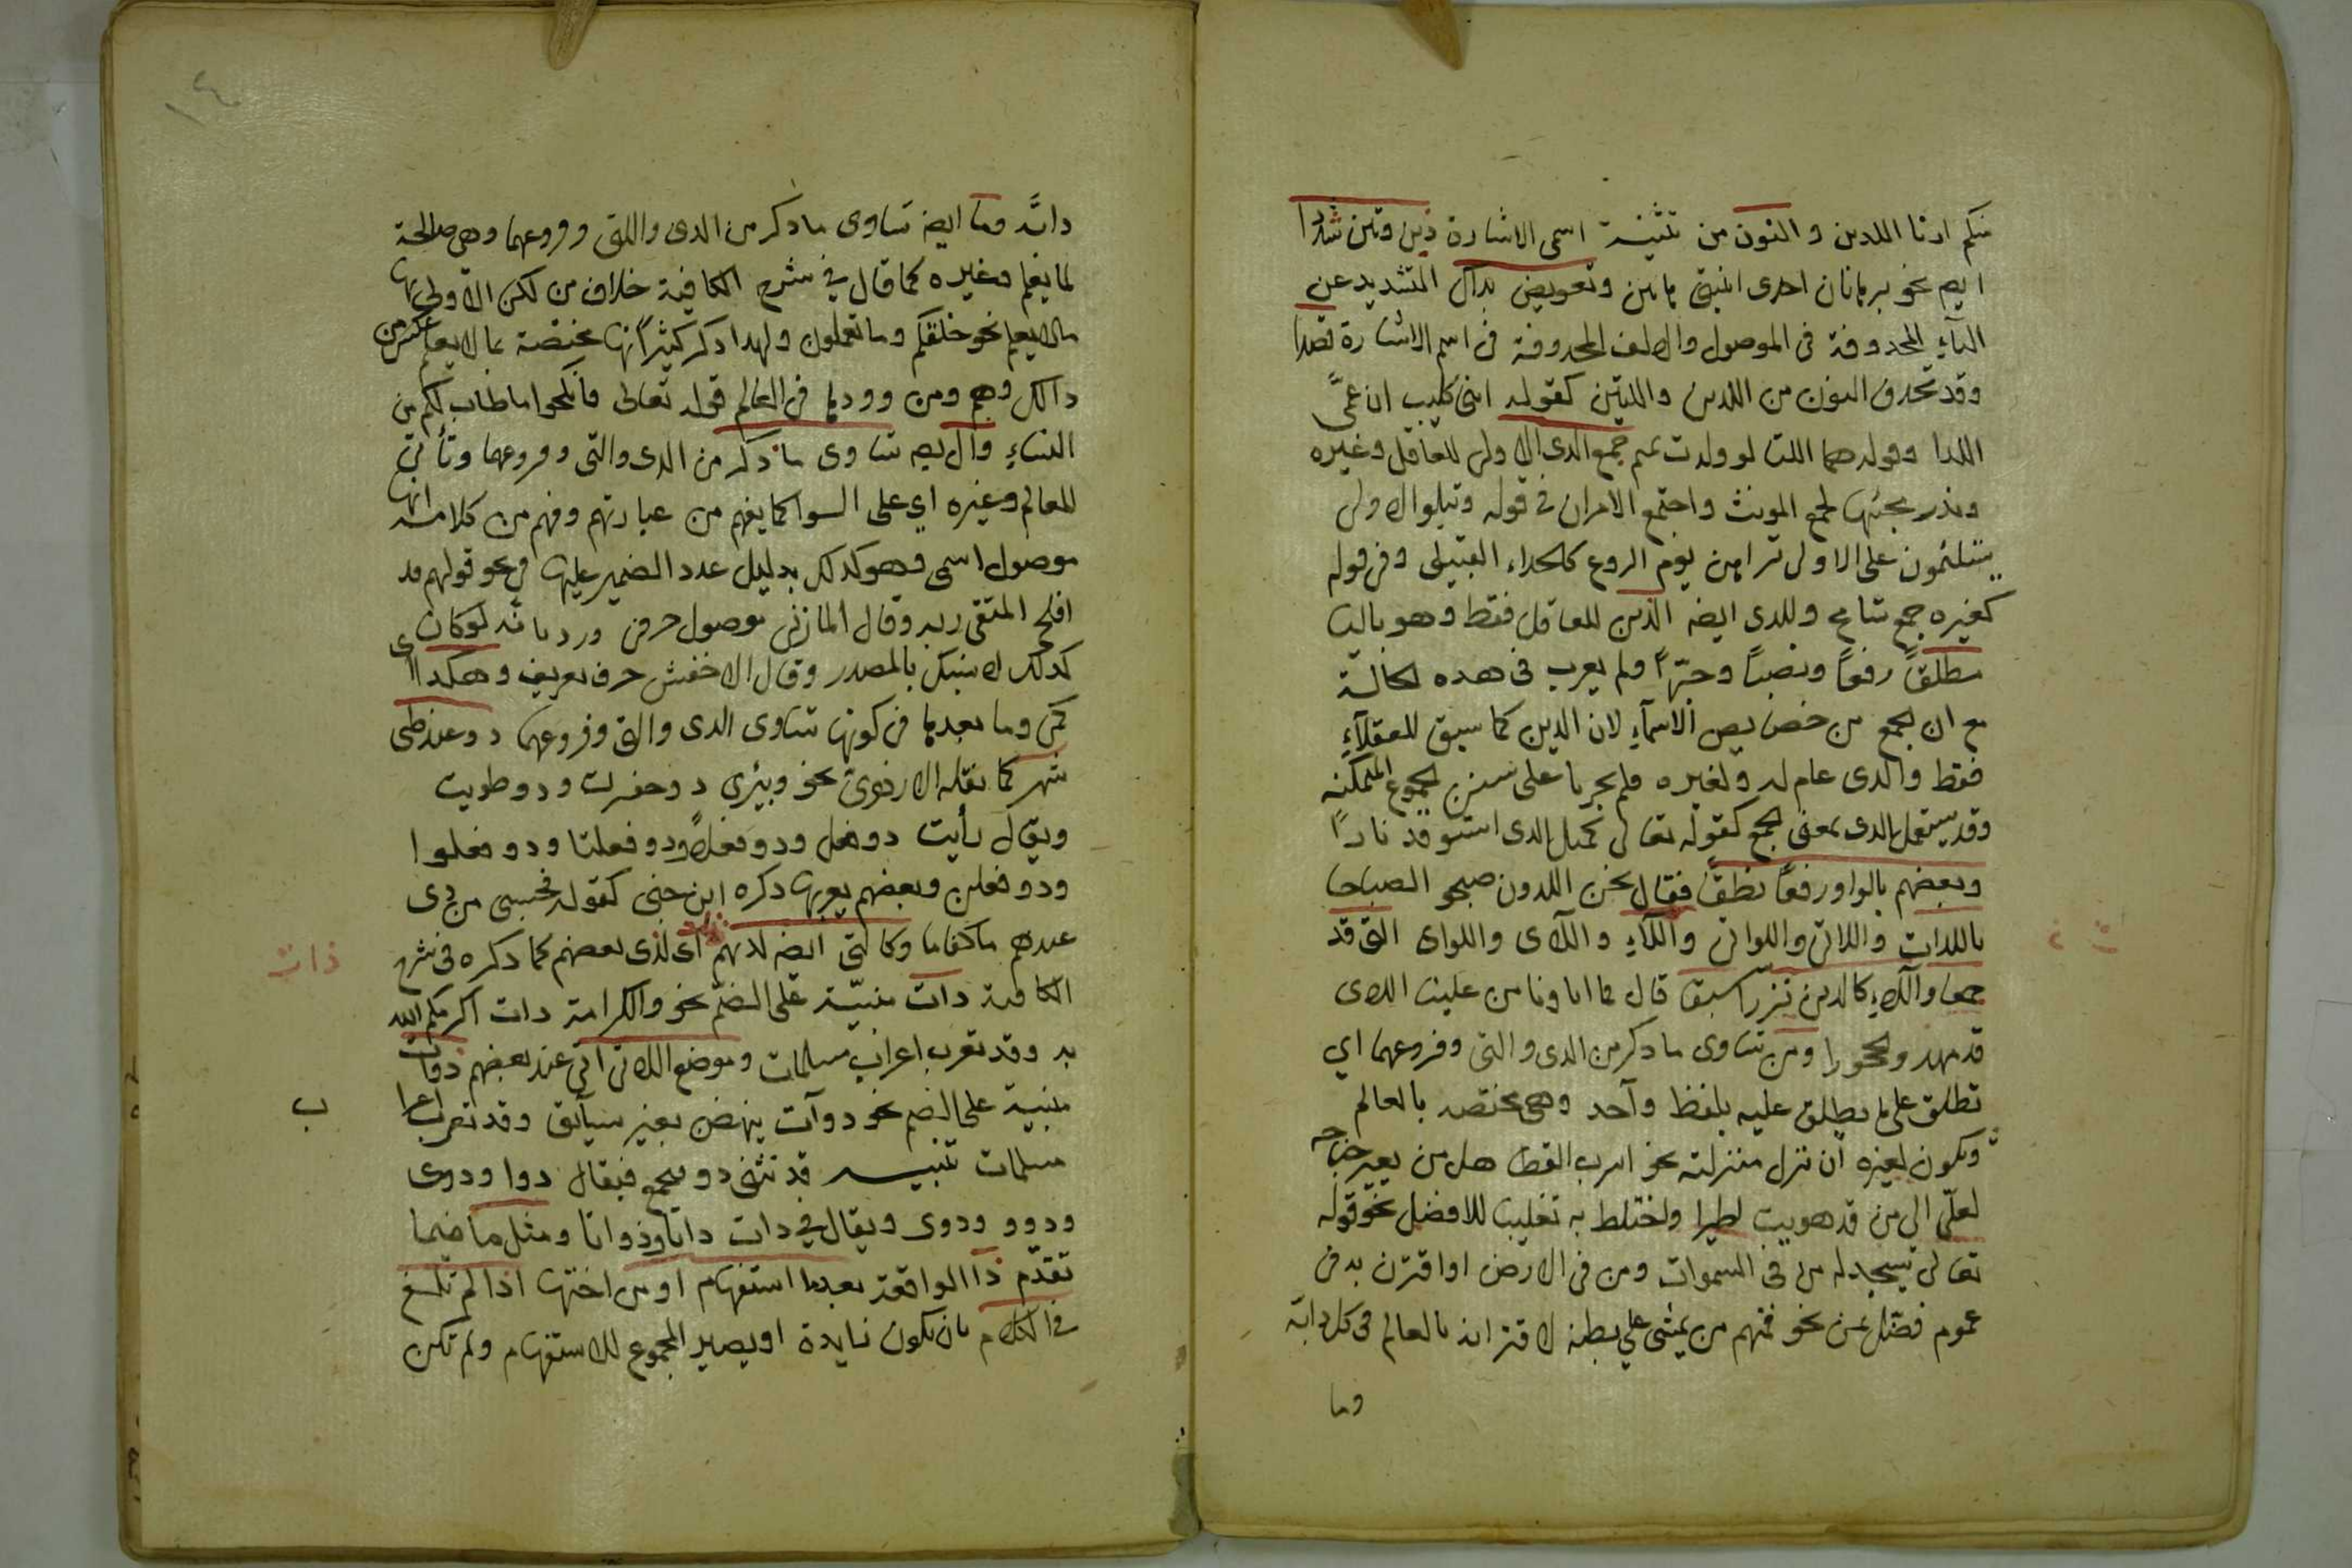 منكم ارنا اللدين والنون من تثنية اسمى الاشارة ذين وتين شددا
ايضه نحو برهانان احدى ابنتى هاتين وتعويض بذاك التشديد عن
الياء المحدوفة فى الموصول والالف المحدوفة فى اسم الاشارة قصدا
وقد تحدف النون من اللدين واللتين كقوله ابنى كليب ان عمى
اللدا وقوله هما اللتا لو ولدت تميم جمع الدى الاولى للعاقل وغيره
وندر مجئها لجمع المونث واجتمع الامران فى قوله وتبلو الاولى
يستلئمون على الاولى تراهن يوم الروع كالحداء القبل وفى قوله
كغيره جمع تسامح وللدى ايضه الذين للعاقل فقط وهو باليا
مطلقا رفعا ونصبا وجرا ولم يعرب فى هده الحالة
مع ان الجمع من خصايص الاسماء لان الدين كما سبق للعقلاء
فقط والدى عام له ولغيره فلم يجريا على سنن الجموع المتمكنة
وقد يستعمل الدى بمعنى الجمع كقوله تعالى كمثل الدى استوقد نارا
وبعضهم بالواو رفعا نطقا فقال نحن اللدون صبحوا الصباحا
باللات واللاتى واللواتى واللاء واللاى واللواى التى قد
جمعا واللاء كالدين نزرا سبق قال فما اباونا بامن علينا اللاى
قد مهدوا الحجورا ومن تساوى ما دكر من الدى والتى وفروعهما اي
تطلق على ما يطلق عليه بلفظ واحد وهى مختصه بالعالم
وتكون لغيره ان نزل منزلته نحو اسرب القطا هل من يعير جناحه
لعلى الى من قد هويت اطير او اختلط به تغليبا للافضل نحو قوله
تعالى يسجد له من فى السموات ومن فى الارض او اقترن به فى
عموم فصل بمن نحو فمنهم من يمشى على بطنه لاقترانه بالعالم فى كل دابة
وما
١٤
دابة وما ايضه تساوى ما دكر من الدى والتى وفروعهما وهى صالحة
لما يعلم وغيره كما قال في شرح الكافية خلاف من لكن الاولى بها
ما لا يعلم نحو خلقكم وما تعملون ولهدا دكر كثير انها مختصة بما لا يعلم عكس من
دالك وهم ومن ورودها فى العالم قوله تعالى فانكحوا ما طاب لكم من
النساء وال ايضه تساوى ما دكر من الدى والتى وفروعهما وتأتى
للعالم وغيره اي على السوا كما يفهم من عبارتهم وفهم من كلامه انها
موصول اسمى وهو كدلك بدليل عود الضمير عليها فى نحو قولهم قد
افلح المتقى ربه وقال المازنى موصول حرفى ورد بانه لو كان
كدلك لانسبك بالمصدر وقال الاخفش حرف تعريف وهكدا اى
كمن وما بعدها فى كونها تساوى الدى والتى وفروعهما دو عند طى
شهر كما نقله الازهرى نحو وبئرى دو حفرت ودو طويت
ويقال رأيت دو فعل ودو فعلا ودو فعلتا ودو فعلوا
ودو فعلن وبعضهم يعربها دكره ابن جنى كقوله فحسبى من دى
عندهم ما كفانيا وكالتى ايضه لديهم اى لذى بعضهم كما دكره فى شرح
ذات
الكافية دات مبنية على الضم نحو والكرامة دات اكرمكم الله
به وقد تعرب اعراب مسلمات وموضع اللاتى اتى عند بعضهم دوات
مبنية على الضم نحو دوات ينهضن بغير سائق وقد تعرب اعرا
ب
مسلمات تنبيه قد تثنى دو وتجمع فيقال دوا ودوى
ودوو ودوى ويقال في دات داتا وذواتا ومثل ما فيما
تقدم ذا الواقعة بعدما استفهام او من اختها اذا لم تلغ
فى الكلام بان تكون زايدة او يصير المجموع للاستفهام ولم تكن